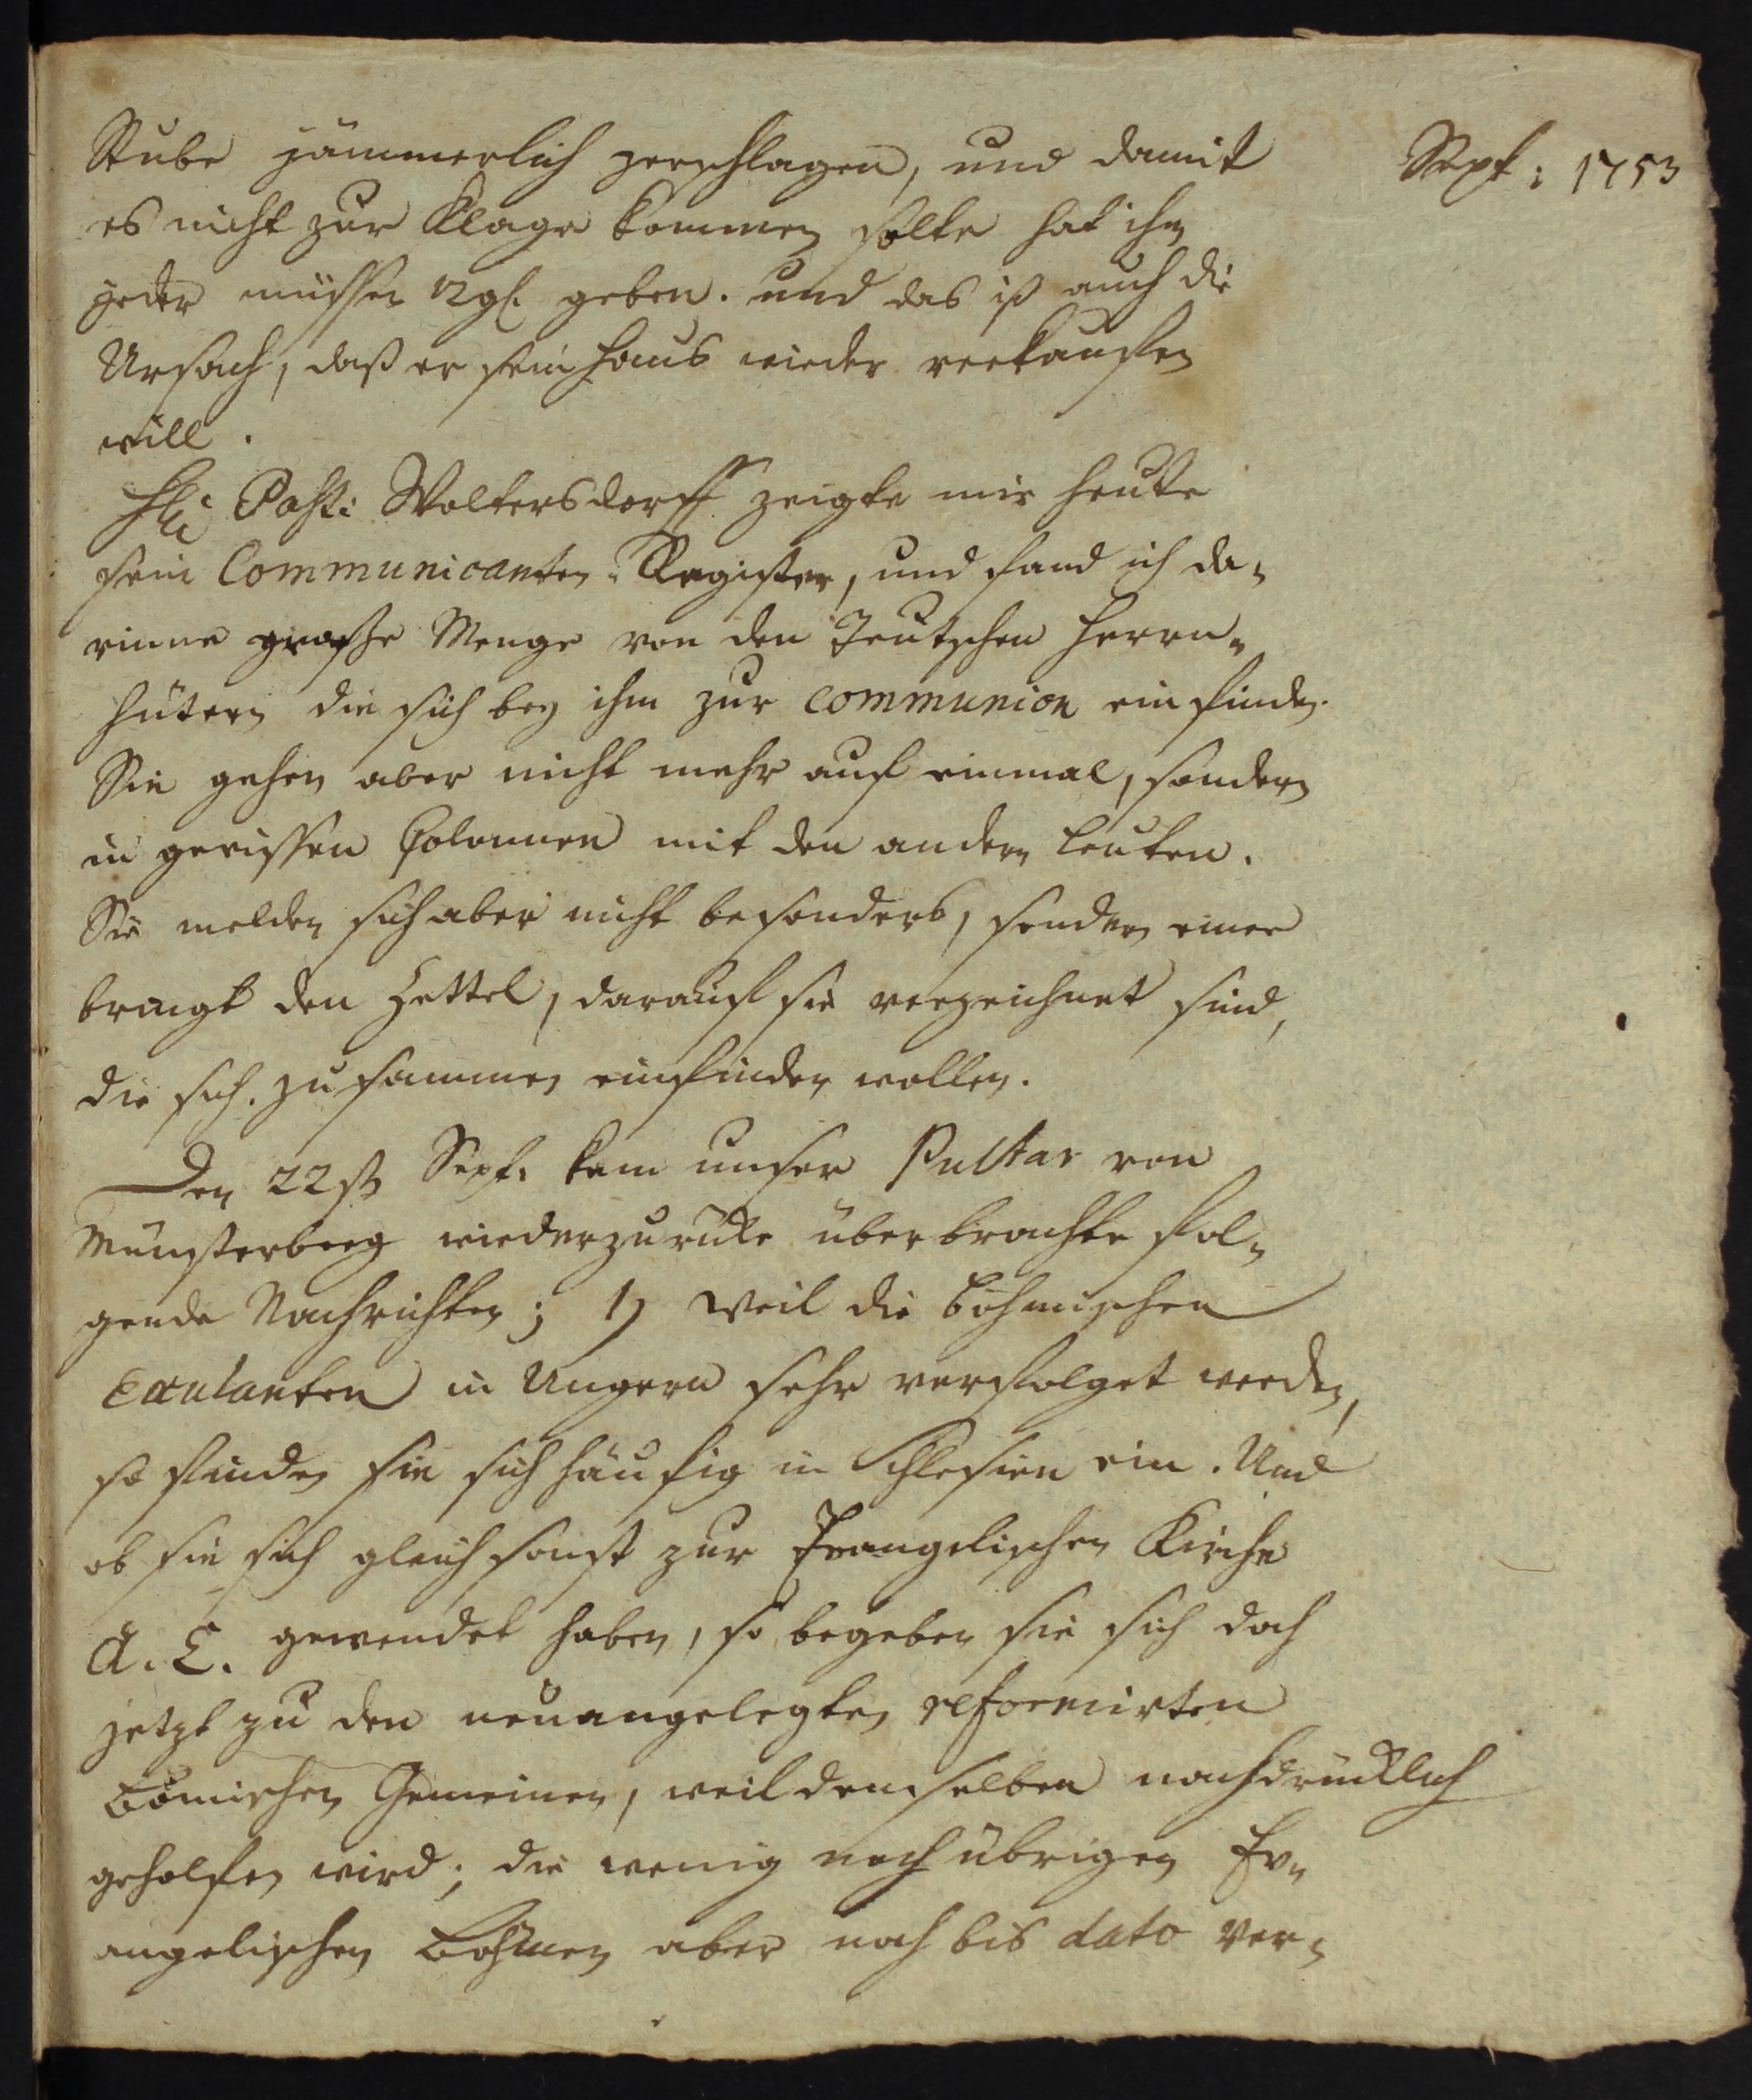 Sept: 1753
Stube jämmerlich zerschlagen, und damit
es nicht zur Klage kommen solte hat ihm
jeder müssen 12 gl. geben. und das ist auch die
Ursach, daß er sein Haus wieder verkauffen
will.
Past: Woltersdorff zeigte mir heute
sein Communicanten-Register, und fand ich da-
rinne grosse Menge von den Teutschen Herrn-
hütern die sich bey ihm zur communion einfinden.
Sie gehen aber nicht mehr auf einmal, sondern
in gewissen Colonnen mit den andern Leuten.
Sie melden sich aber nicht besonders, sondern einer
bringt den Zettel, darauf sie verzeichnet sind,
die sich zusammen einfinden wollen.
Den 22st Sept: kam unser Pultar von
Münsterberg wiederzurücke überbrachte fol-
gende Nachrichten; 1) weil die böhmischen
Exulanten in Ungern sehr verfolget werden,
so finden sie sich häufig in Schlesien ein. Und
ob sie sich gleich sonst zur Evangelischen Kirche
A. C. gewendet haben, so begeben sie sich doch
jetzt zu den neuangelegten reformirten
Bömischen Gemeinen, weil denselben nachdrücklich
geholfen wird; die wenig noch übrigen Ev-
angelischen Böhmen aber noch bis dato ver-